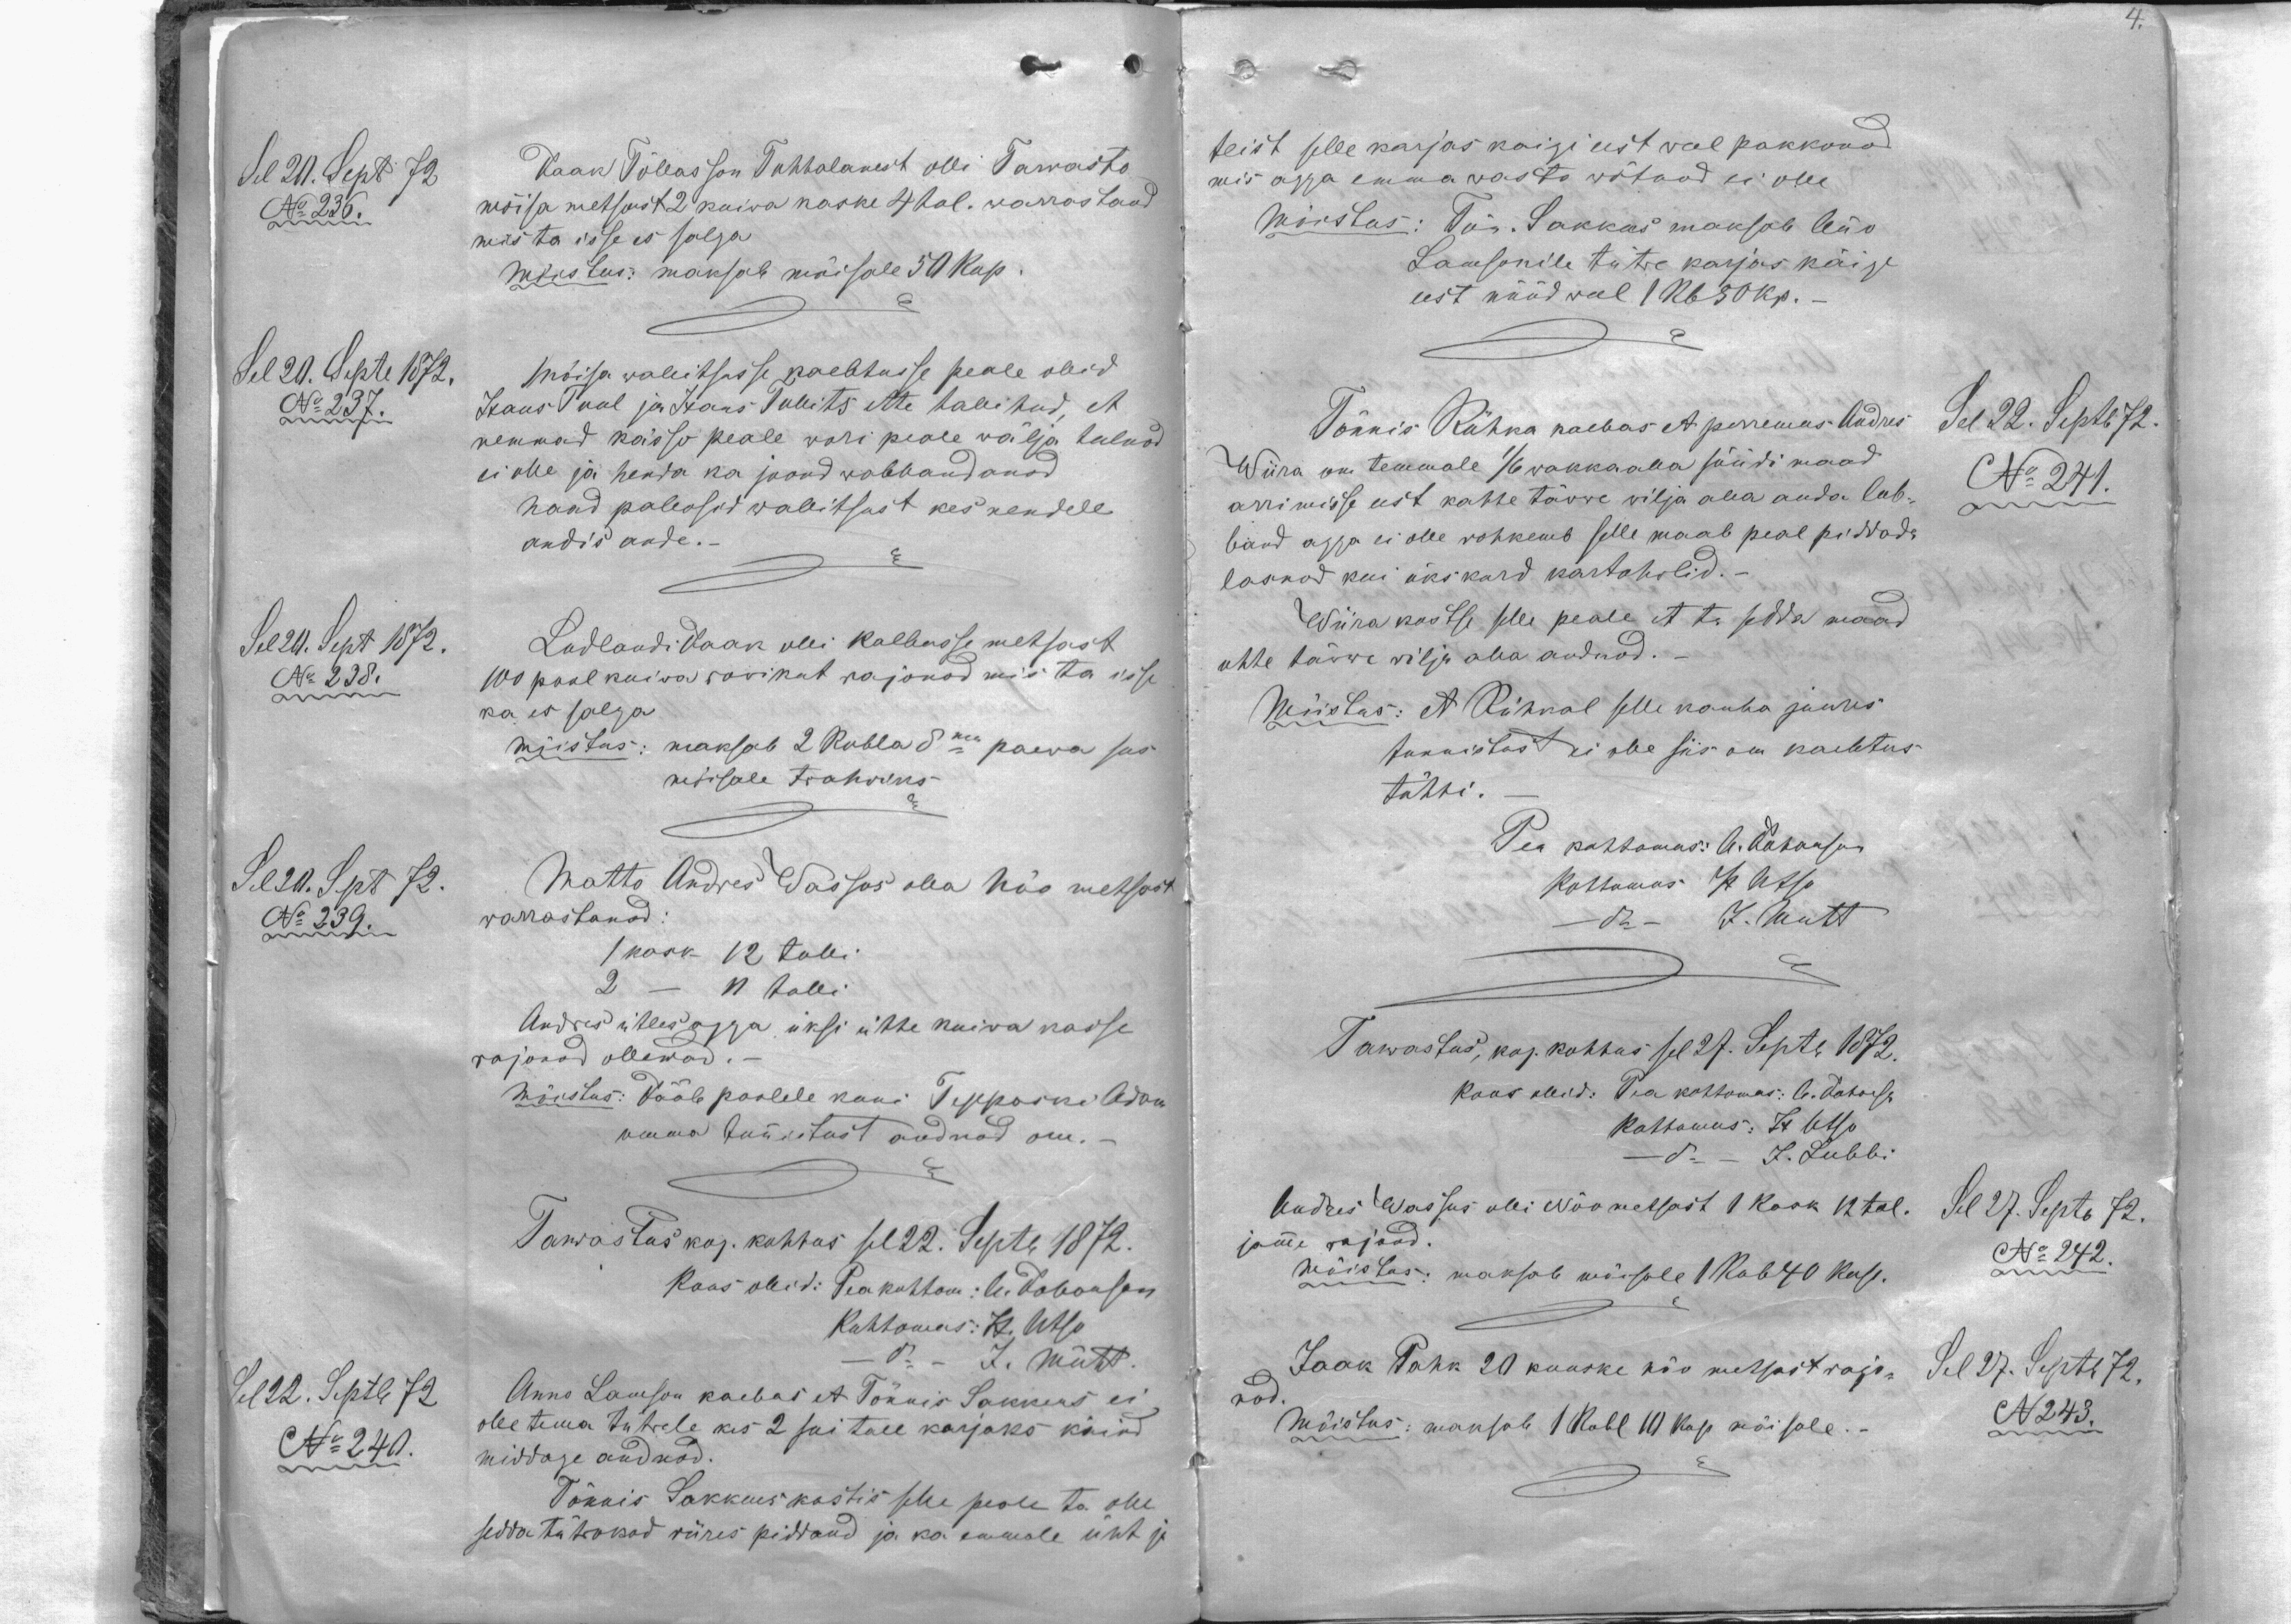 4.
Sel 20. Sept 72
No 236.
Jaak Tõllasson Tuhhalanest olli Tarwasto
mõisa metsast 2 kuiwa kaske 4 tol. warrastand
mis ta isse es salga
Mõistus: maksab mõisale 50 Kop.
Sel 20. Septe 1872.
No 237.
Mõisa wallitsusse kaebtusse peale ollid
Hans Puul ja Hans Tullits ette tallitud, et
nemmad kässo peale wori peale wälja tulnod
ei olle ja henda ka joond wabbandanod
Naad pallosid wallitsust kes nendele
andis ande. -
Sel 20. Sept 1872.
No 238.
Ludlandi Jaak olli Kalbusse metsast
100 pool kuiwa rowikut rajonod mis ta isse
ka es salga
Mõistus: maksab 2 Rubla 8 ma paewa sus
mõisale trahwiks
Sel 20. Spt 72.
No 239.
Matto Andres Wassus olla Nöo metsast
warrastanod:
1 kask 12 tolli
2 — 11 tolli
Andres ütles agga üksi ühhe kuiwa kasse
rajonod ollewad. -
Mõistus: Jääb poolele kuni Teppaski Adam
omma tunnistust andnod om. -
Tarwastus kog. kohhus sel 22. Septb 1872.
Koos ollid: Pea kohtom: A. Johanson
Kohtomes: H. Utso
— d. - J. Mütt.
Sel 22. Septb 72
No 240.
Anno Lamson kaebas et Tõnnis Sakkeus ei
olle tema tütrele kes 2 sui tall karjaks käind
middage andnod.
Tõnnis Sakkeus kostis selle peale ta olle
sedda tütrokod riires piddand ja ka emmale üht ja
teist selle karjas kaigi eest weel pakkonod
mis agga emma wasto wõtnod ei olle
Mõistus: Tõn. Sakkeus maksab Ano
Lamsonile tütre karjas käigi
eest nüüd weel 1 Rb 50 Kp. -
Sel 22. Septb 72.
No 241.
Tõnnis Rühka kaebas et perremees Andres
Wiira om temmale 1/6 wakkaalla süüdi maad
arrimisse eest kahhe täwwe wilja alla anda lub-
band agga ei olle rohkemb selle maab peal piddada
lasnod kui ükskord kartohwlid. -
Wiira kostse selle peale et ta sedda maad
uhhe täwwe wilja alla andnod. -
Mõistus: et Rühkal selle kauba juures
tunnistust ei olle siis om kaebtus
tühhi. —
Pea kohtomes: A. Johanson
Kohtomes H Utso
— d. - J. Mutt
Tarwastus, kog. kohhus sel 27. Septb 1872.
Koos ollid: Pea kohtomes: A. Johans
Kohtomes: H Utso
— d. - J. Lubbi
Andres Wassus olli Nöo metsast 1 Kask 12 tol.
jamme rajond.
Sel 27. Septb 72.
No 242.
Mõistus: maksab mõisale 1 Rub 40 Kop.
Jaak Pahk 20 kuuske nöo metsast rajo-
nod.
Sel 27. Septb 72.
N 243.
Mõistus: maksab 1 Rubl 10 Kop mõisale. -